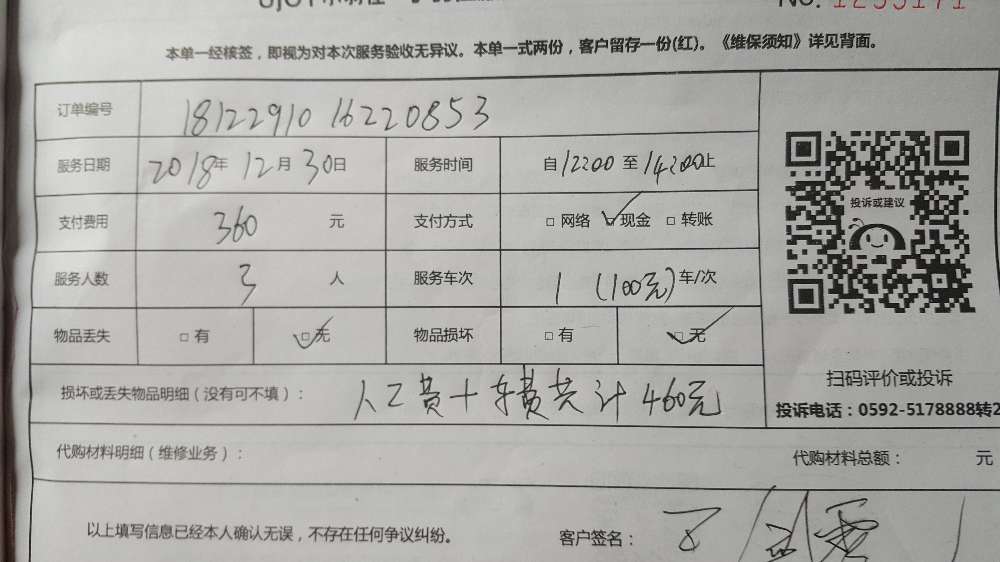 No. 1253171
本单一经核签，即视为对本次服务验收无异议。本单一式两份，客户留存一份(红)。《维保须知》详见背面。
订单编号 1812291016220853
服务日期 2018年12月30日 服务时间 自12:00至14:00止
支付费用 360 元 支付方式 □网络 ☑现金 □转账
服务人数 3 人 服务车次 1 (100元)车/次
物品丢失 □有 ☑无 物品损坏 □有 ☑无
投诉或建议
损坏或丢失物品明细（没有可不填）： 人工费+车费共计460元
扫码评价或投诉
投诉电话：0592-5178888转2
代购材料明细（维修业务）： 代购材料总额： 元
以上填写信息已经本人确认无误，不存在任何争议纠纷。 客户签名：